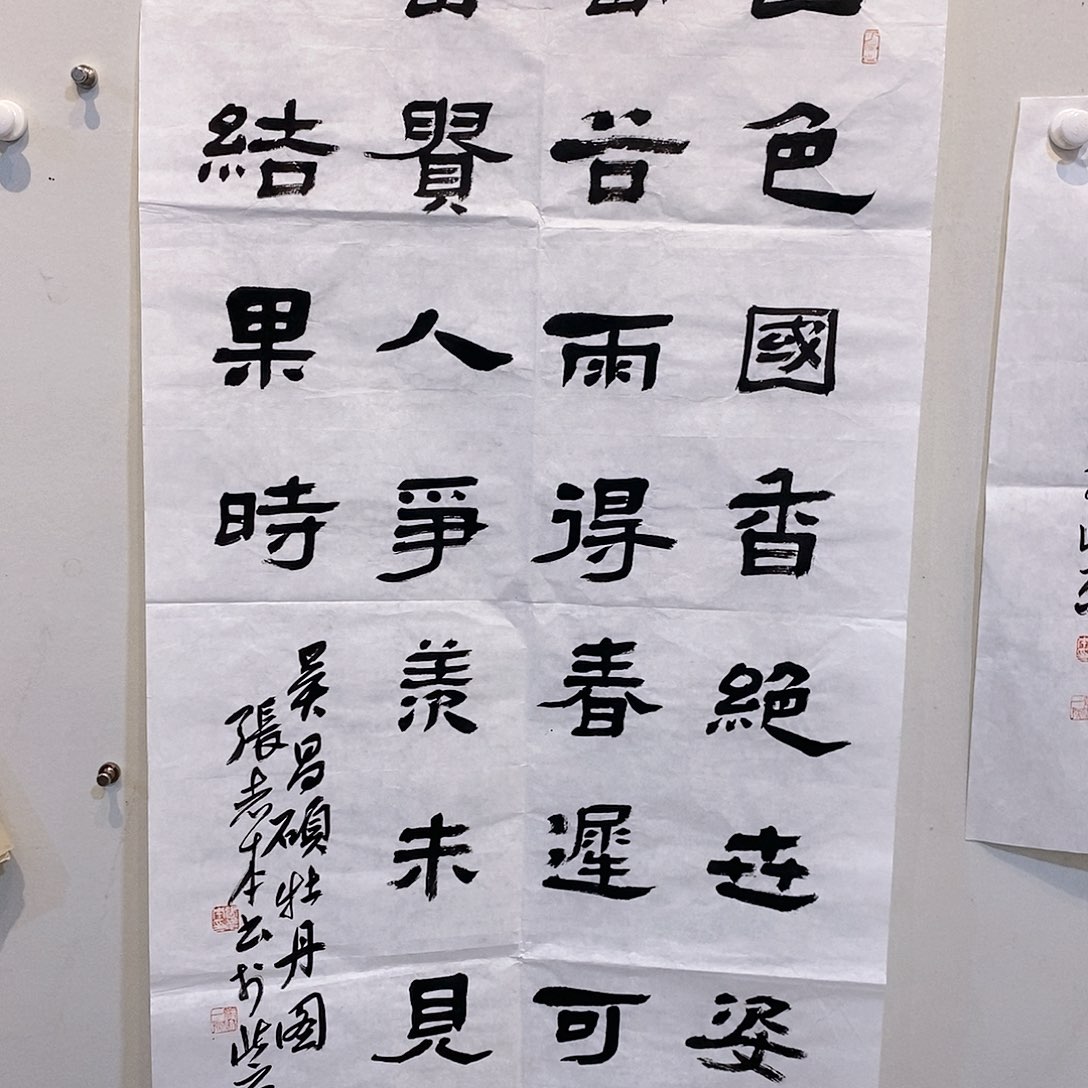 色國香絕世姿
谷雨得春遲可
賢人爭羨未見
結果時
吴昌碩牡丹图
張志本书於此